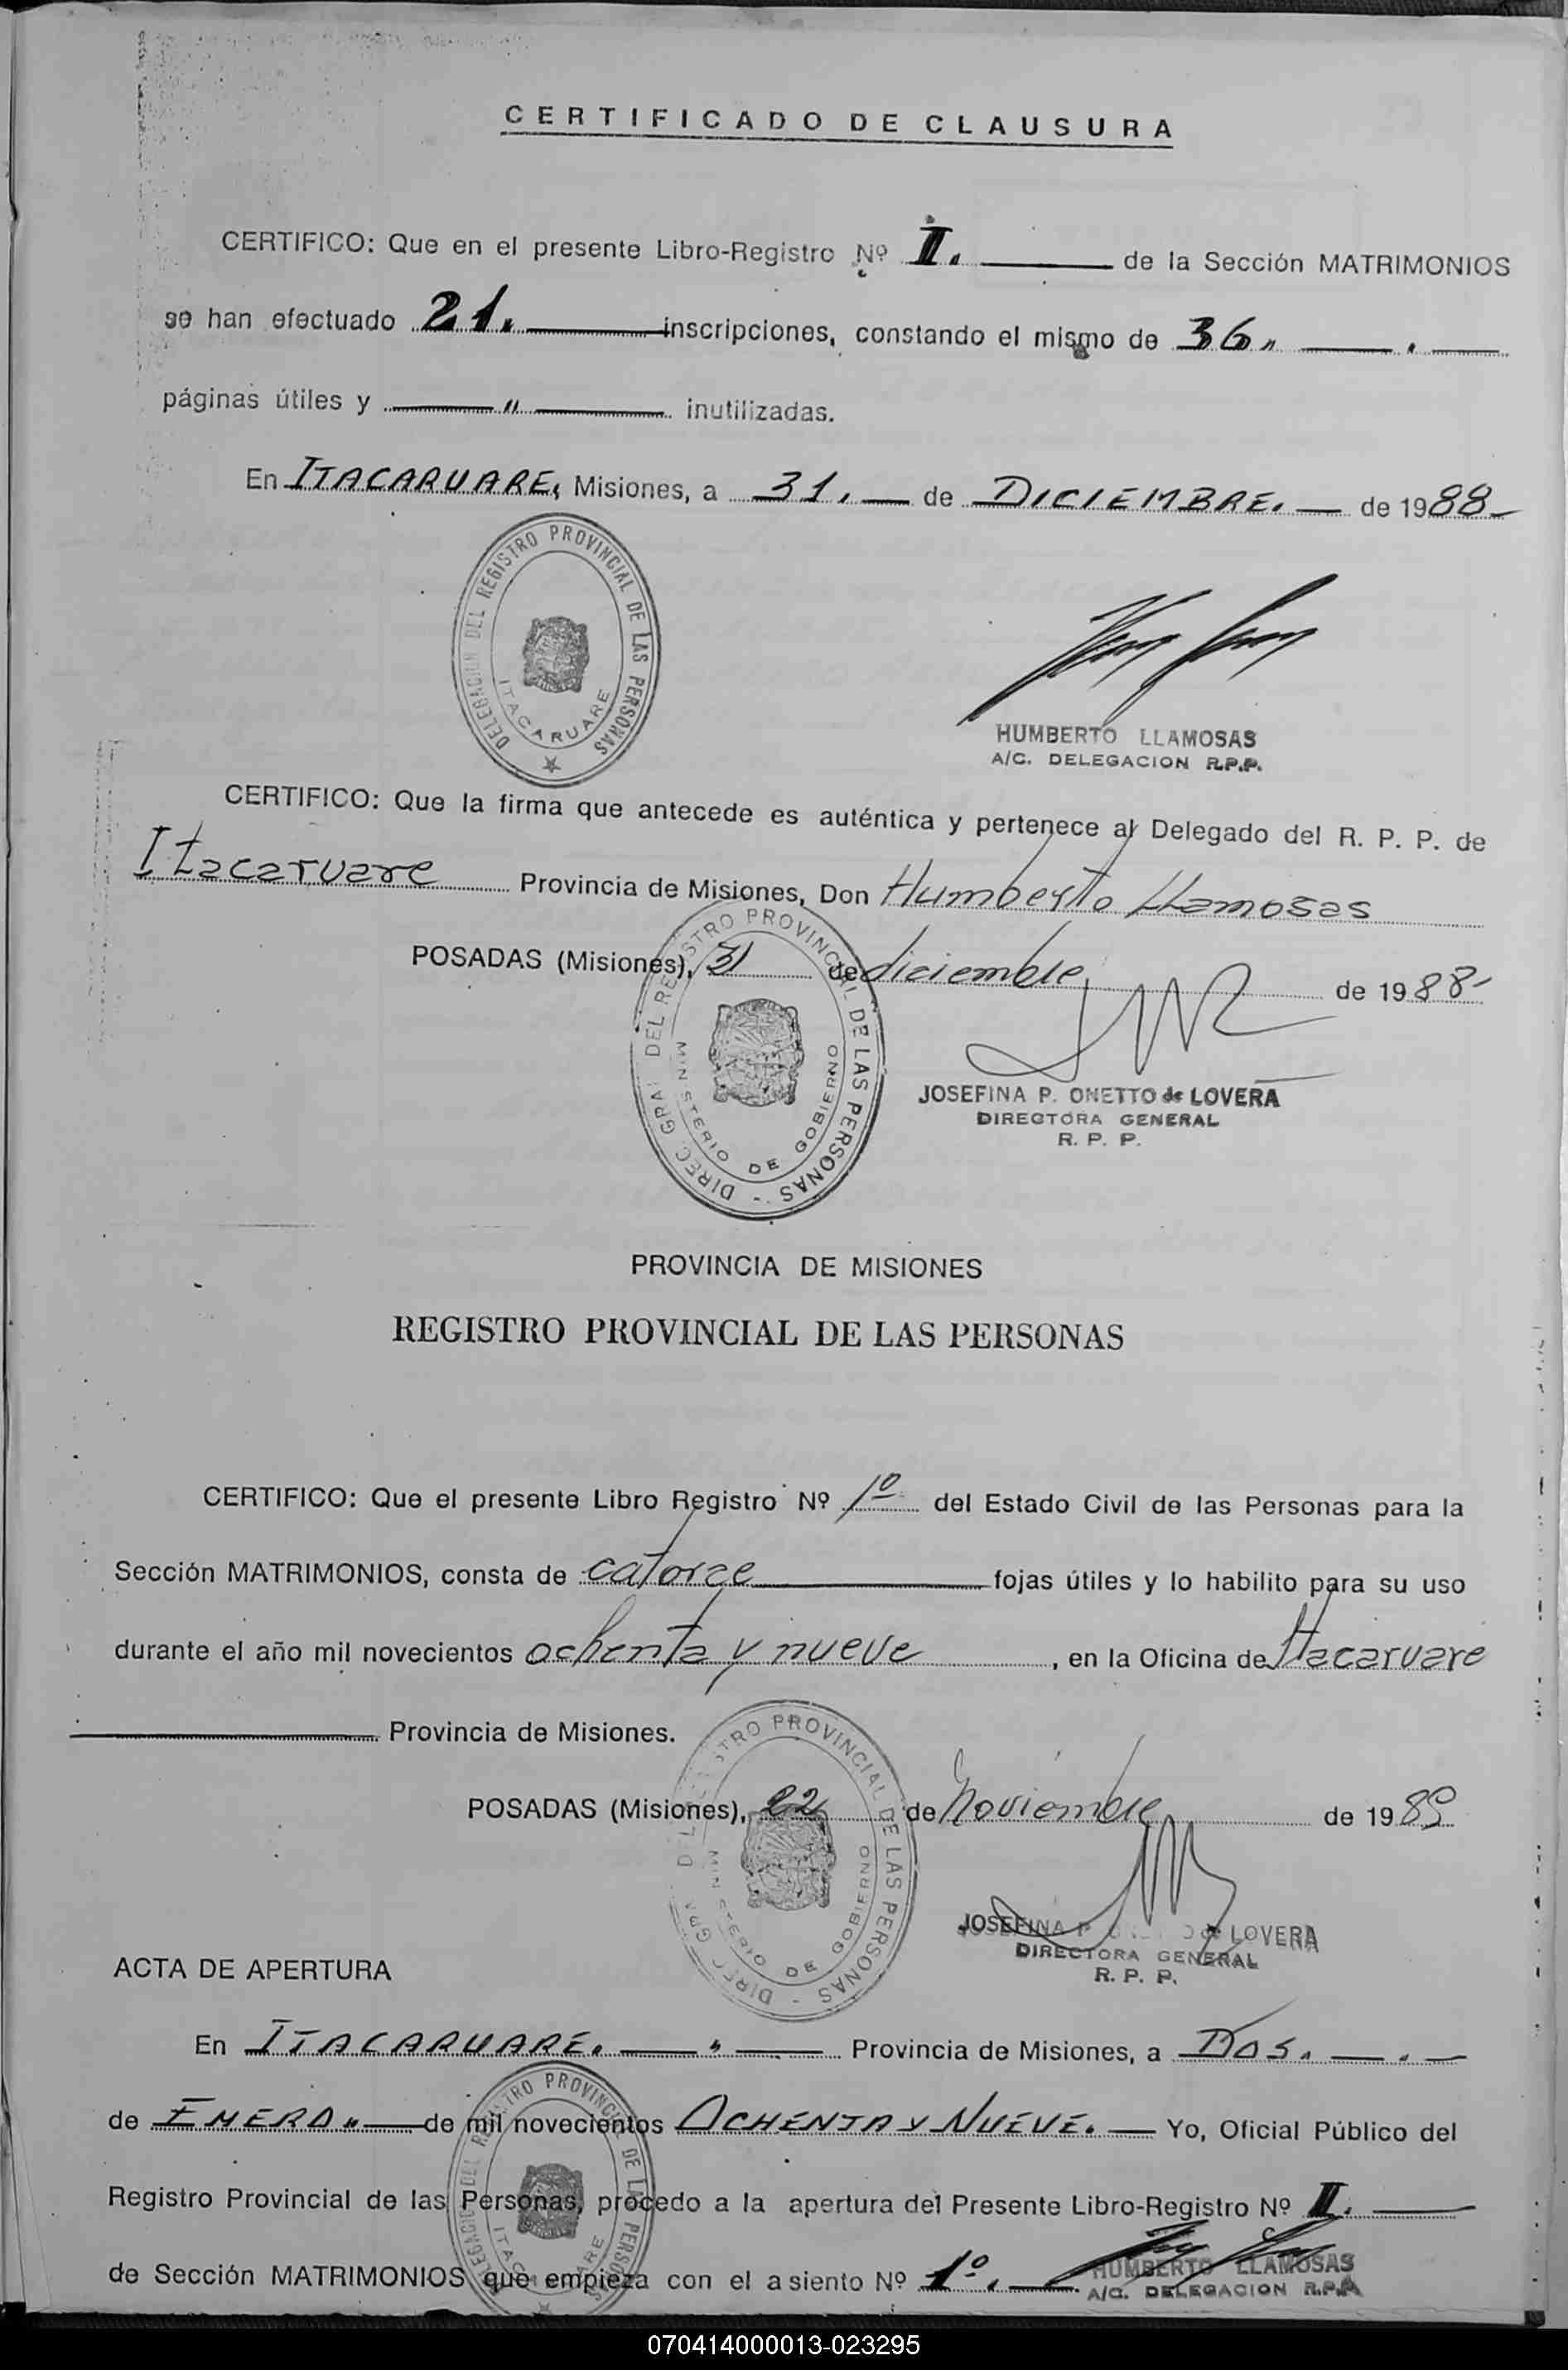 CERTIFICADO DE CLAUSURA
CERTIFICO: Que en el presente Libro-Registro Nº I. de la Sección MATRIMONIOS
se han efectuado 21. inscripciones, constando el mismo de 36 "
páginas útiles y " inutilizadas.
En ITACARUARE, Misiones, a 31. de DICIEMBRE. de 1988-
DELEGACION DEL REGISTRO PROVINCIAL DE LAS PERSONAS
ITACARUARE
HUMBERTO LLAMOSAS
A/C. DELEGACION R.P.P.
CERTIFICO: Que la firma que antecede es auténtica y pertenece al Delegado del R. P. P. de
Itacaruare Provincia de Misiones, Don Humberto Llamosas
POSADAS (Misiones), 31 de diciembre de 1988-
DIREC GRAL DEL REGISTRO PROVINCIAL DE LAS PERSONAS -
MINISTERIO DE GOBIERNO
JOSEFINA P. ONETTO de LOVERA
DIRECTORA GENERAL
R. P. P.
PROVINCIA DE MISIONES
REGISTRO PROVINCIAL DE LAS PERSONAS
CERTIFICO: Que el presente Libro Registro Nº 1º del Estado Civil de las Personas para la
Sección MATRIMONIOS, consta de catorce fojas útiles y lo habilito para su uso
durante el año mil novecientos ochenta y nueve, en la Oficina de Itacaruare
Provincia de Misiones.
POSADAS (Misiones), 22 de Noviembre de 19
DIREC GRAL DEL REGISTRO PROVINCIAL DE LAS PERSONAS -
MINISTERIO DE GOBIERNO
JOSEFINA P. de LOVERA
DIRECTORA GENERAL
R. P. P.
ACTA DE APERTURA
En ITACARUARE. " Provincia de Misiones, a DOS.
de ENERO " de mil novecientos OCHENTA Y NUEVE. Yo, Oficial Público del
Registro Provincial de las Personas, procedo a la apertura del Presente Libro-Registro Nº I.
de Sección MATRIMONIOS que empieza con el asiento Nº 1º.
DELEGACION DEL REGISTRO PROVINCIAL DE LAS PERSONAS
ITACARUARE
HUMBERTO LLAMOSAS
A/C. DELEGACION R.P.P.
070414000013-023295